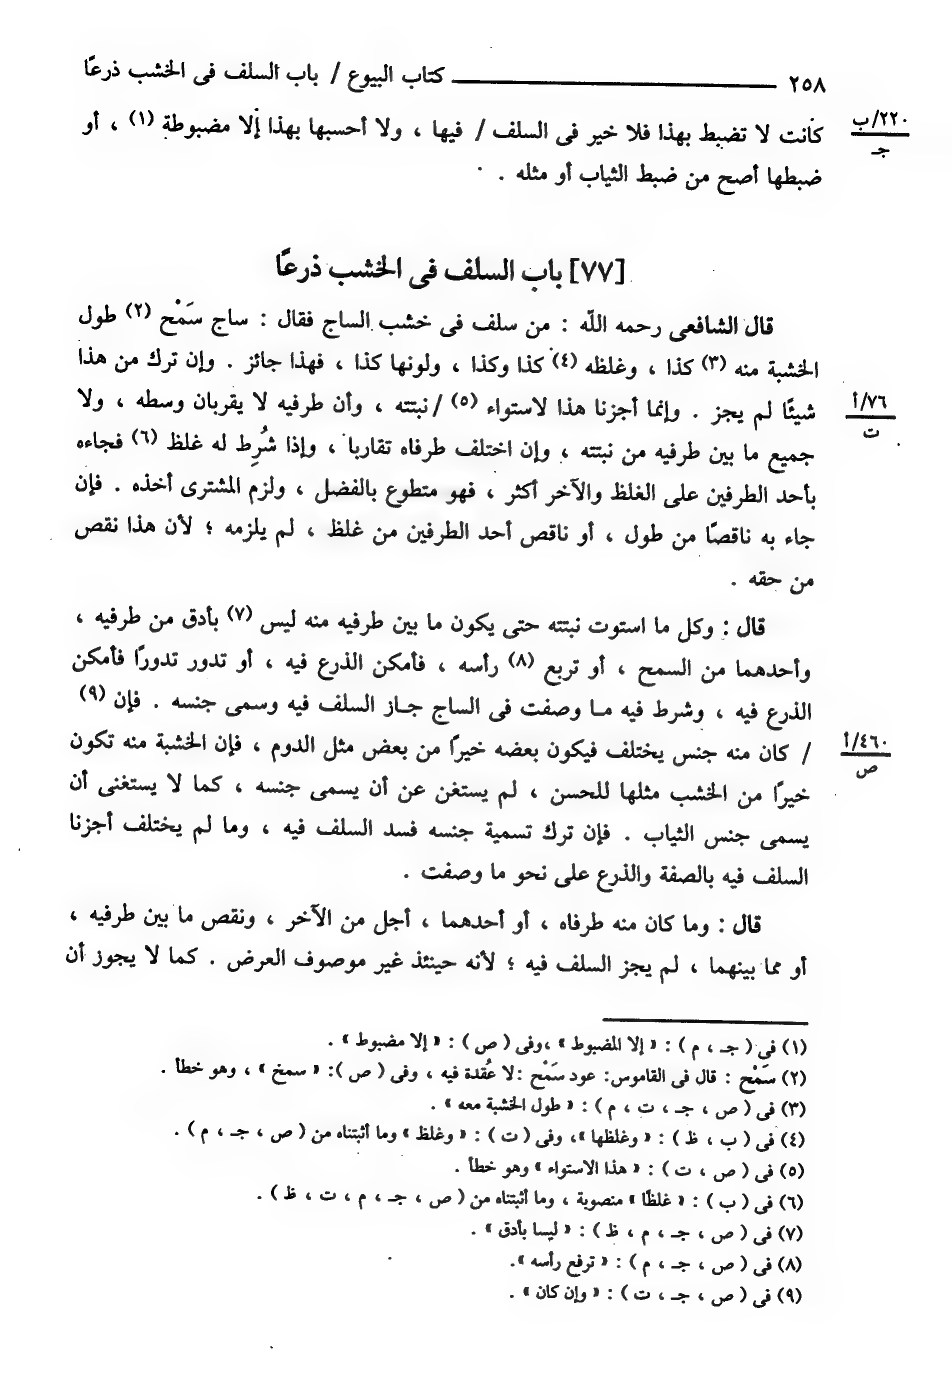 ٢٥٨ ــــــــــــ كتاب البيوع / باب السلف فى الخشب ذرعًا
٢٢٠/ب
جـ
كانت لا تضبط بهذا فلا خير فى السلف / فيها ، ولا أحسبها بهذا إلا مضبوطة (١) ، أو
ضبطها أصح من ضبط الثياب أو مثله .
[٧٧] باب السلف فى الخشب ذرعًا
قال الشافعى رحمه الله : من سلف فى خشب الساج فقال : ساج سَمْح (٢) طول
الخشبة منه (٣) كذا ، وغلظه (٤) كذا وكذا ، ولونها كذا ، فهذا جائز . وإن ترك من هذا
شيئًا لم يجز . وإنما أجزنا هذا لاستواء (٥) /نبتته ، وأن طرفيه لا يقربان وسطه ، ولا
٧٦/أ
ت
جميع ما بين طرفيه من نبتته ، وإن اختلف طرفاه تقاربا ، وإذا شُرِط له غلظ (٦) فجاءه
بأحد الطرفين على الغلظ والآخر أكثر ، فهو متطوع بالفضل ، ولزم المشترى أخذه . فإن
جاء به ناقصًا من طول ، أو ناقص أحد الطرفين من غلظ ، لم يلزمه ؛ لأن هذا نقص
من حقه .
قال : وكل ما استوت نبتته حتى يكون ما بين طرفيه منه ليس (٧) بأدق من طرفيه ،
وأحدهما من السمح ، أو تربع (٨) رأسه ، فأمكن الذرع فيه ، أو تدور تدورًا فأمكن
الذرع فيه ، وشرط فيه ما وصفت فى الساج جاز السلف فيه وسمى جنسه . فإن (٩)
/ كان منه جنس يختلف فيكون بعضه خيرًا من بعض مثل الدوم ، فإن الخشبة منه تكون
٤٦٠/أ
ص
خيرًا من الخشب مثلها للحسن ، لم يستغن عن أن يسمى جنسه ، كما لا يستغنى أن
يسمى جنس الثياب . فإن ترك تسمية جنسه فسد السلف فيه ، وما لم يختلف أجزنا
السلف فيه بالصفة والذرع على نحو ما وصفت .
قال : وما كان منه طرفاه ، أو أحدهما ، أجل من الآخر ، ونقص ما بين طرفيه ،
أو مما بينهما ، لم يجز السلف فيه ؛ لأنه حينئذ غير موصوف العرض . كما لا يجوز أن
(١) فى ( جـ ، م ) : « إلا المضبوط » ،وفى ( ص ) : « إلا مضبوط » .
(٢) سَمْح : قال فى القاموس: عود سَمْح :لا عُقدة فيه ، وفى ( ص ): « سمخ » ، وهو خطأ .
(٣) فى ( ص ، جـ ، ت ، م ) : « طول الخشبة معه » .
(٤) فى ( ب ، ظ ) : « وغلظها »، وفى ( ت ) : « وغلظ » وما أثبتناه من ( ص ، جـ ، م ) .
(٥) فى ( ص ، ت ) : « هذا الاستواء » وهو خطأ .
(٦) فى ( ب ) : « غلظًا » منصوبة ، وما أثبتناه من ( ص ، جـ ، م ، ت ، ظ ) .
(٧) فى ( ص ، جـ ، م ، ظ ) : « ليسا بأدق » .
(٨) فى ( ص ، جـ ، م ) : « ترفع رأسه ».
(٩) فى ( ص ، جـ ، ت ) : « وإن كان » .